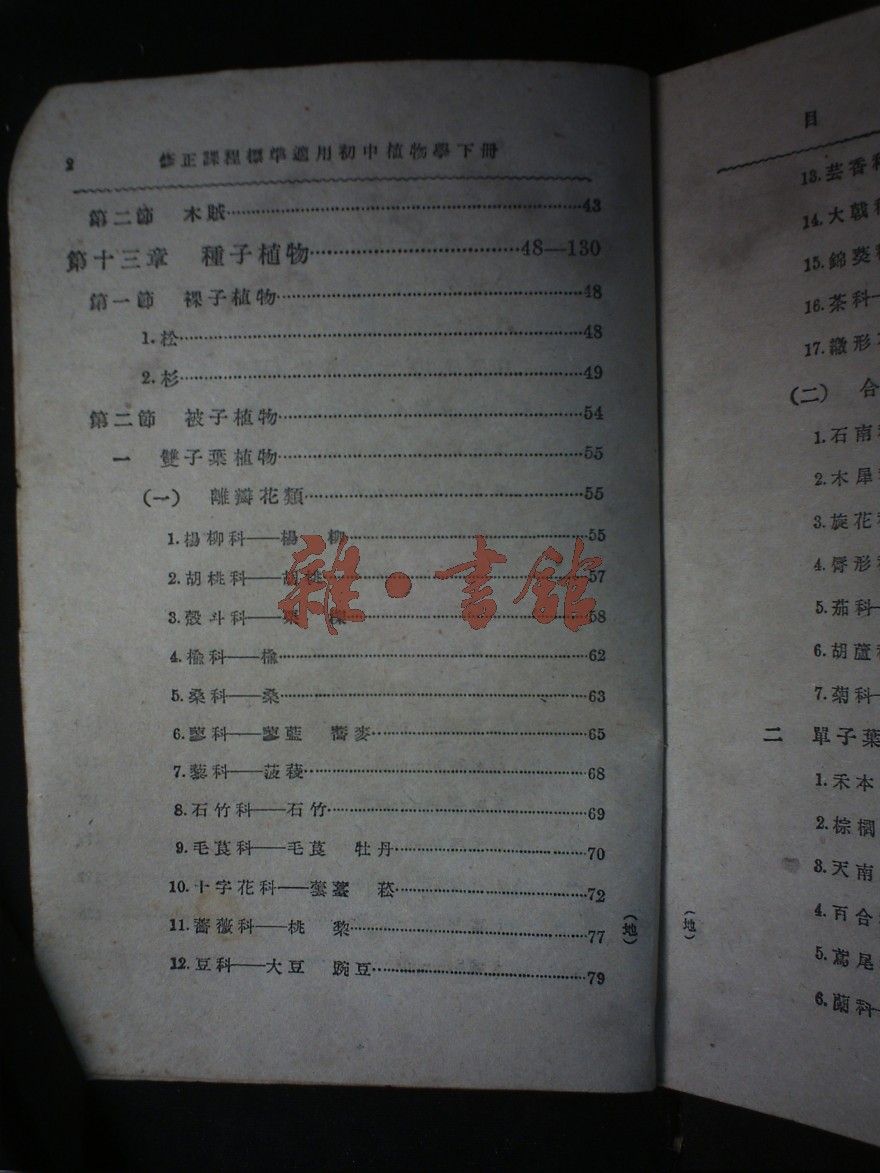 2 修正課程標準適用初中植物學下冊
第二節 木賊 43
第十三章 種子植物 48—130
第一節 裸子植物 48
1. 松 48
2. 杉 49
第二節 被子植物 54
一 雙子葉植物 55
(一) 離瓣花類 55
1. 楊柳科——楊 柳 55
2. 胡桃科——胡桃 57
3. 殼斗科——栗 58
4. 楡科——楡 62
5. 桑科——桑 63
6. 蓼科——蓼藍 蕎麥 65
7. 藜科——菠薐 68
8. 石竹科——石竹 69
9. 毛茛科——毛茛 牡丹 70
10. 十字花科——蕓薹 菘 72
11. 薔薇科——桃 梨 77
12. 豆科——大豆 豌豆 79
(地)
雜·書館
目
13. 芸香科
14. 大戟科
15. 錦葵
16. 茶科—
17. 繖形
(二) 合
1. 石南
2. 木犀
3. 旋花
4. 脣形
5. 茄科—
6. 胡蘆
7. 菊科—
二 單子葉
1. 禾本
2. 棕櫚
3. 天南
4. 百合
5. 鳶尾
6. 蘭科—
(地)